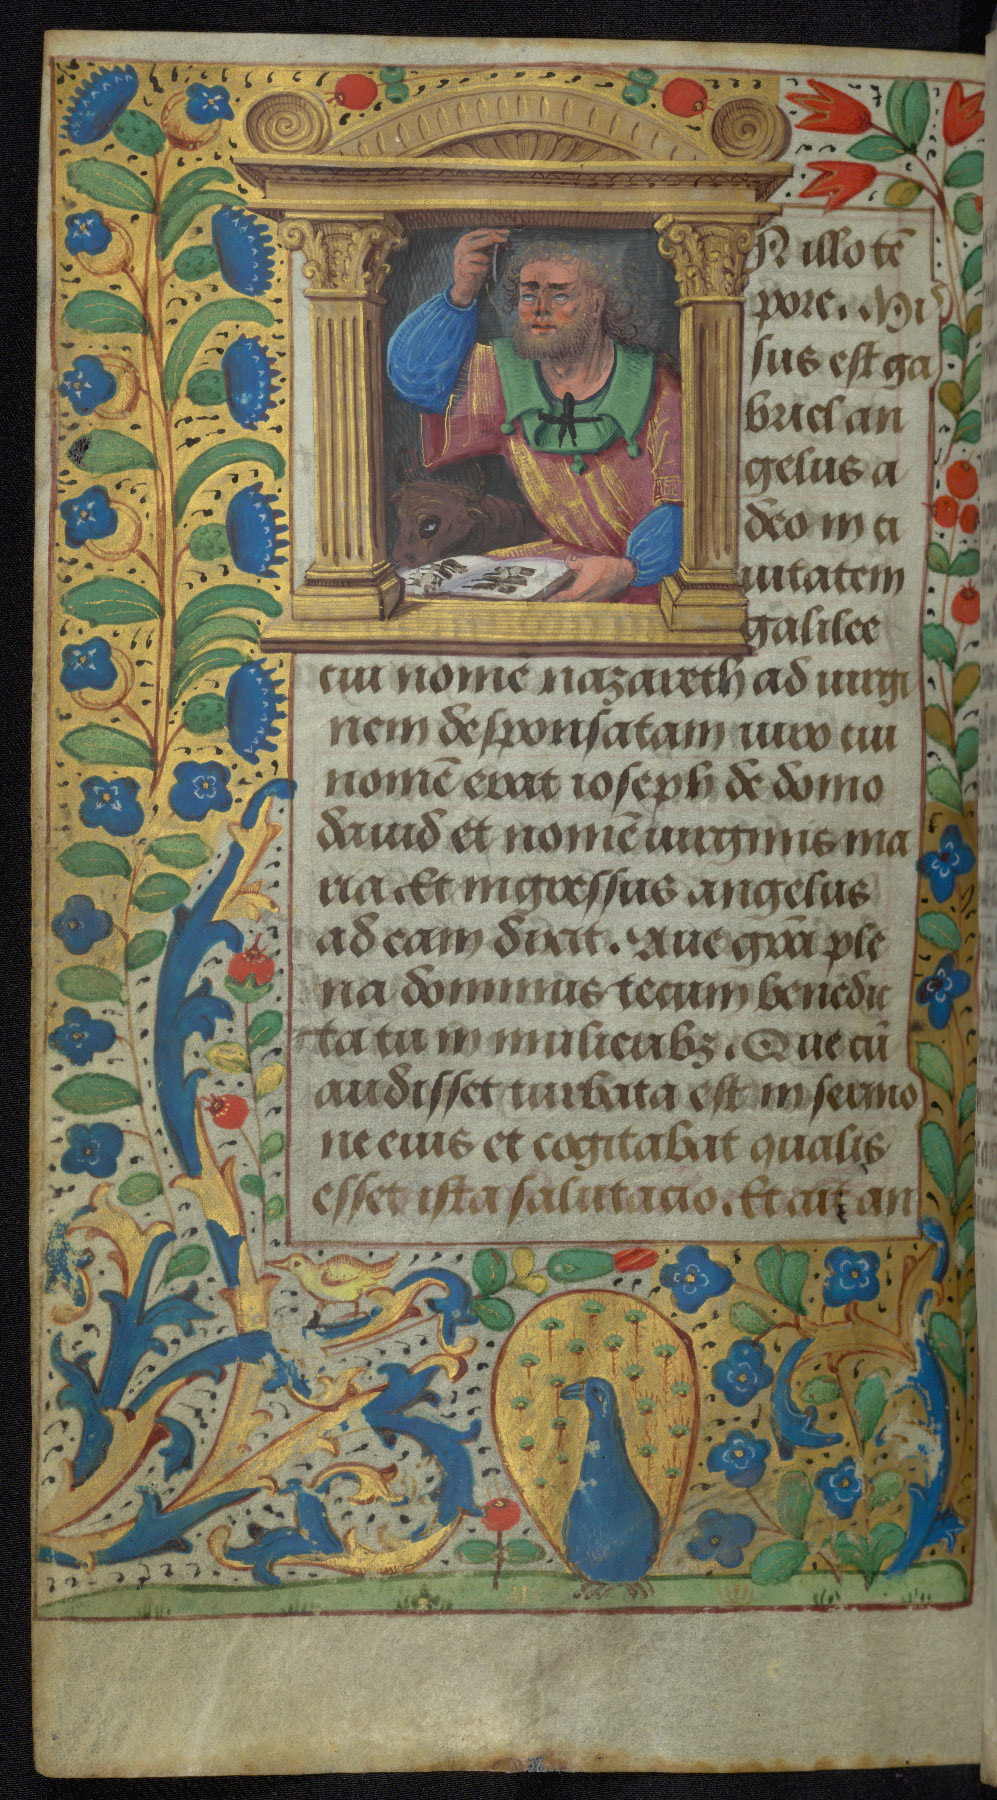 N illo tē
pore. Mi
sus est ga
briel an
gelus a
deo in ci
uitatem
galilee
cui nomē nazareth ad uirgi
nem desponsatam uiro cui
nomē erat ioseph de domo
dauid et nomē uirginis ma
ria. Et ingressus angelus
ad eam dixit. Aue gr̄a ple
na dominus tecum benedic
ta tu in mulieribꝫ. Que cū
audisset turbata est in sermo
ne eius et cogitabat qualis
esset ista salutacio. Et ait an